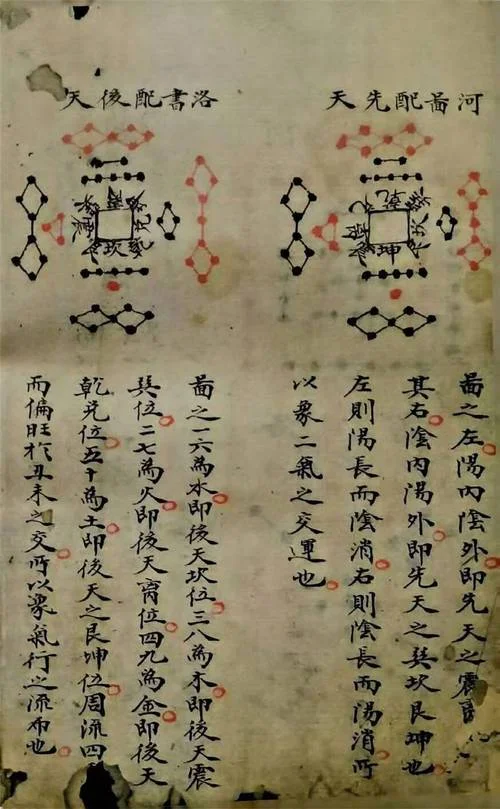 河啚配先天
坤
啚之左陽內陰外即先天之震离
其右陰內陽外即先天之巽坎艮坤也
左則陽長而陰消右則陰長而陽消所
以象二氣之交運也
洛書配後天
坎
啚之一六為水即後天坎位三八為木即後天震
巽位二七為火即後天离位四九為金即後天
乾兌位五十為土即後天之艮坤位周流四
而偏旺於丑未之交所以象氣行之流布也